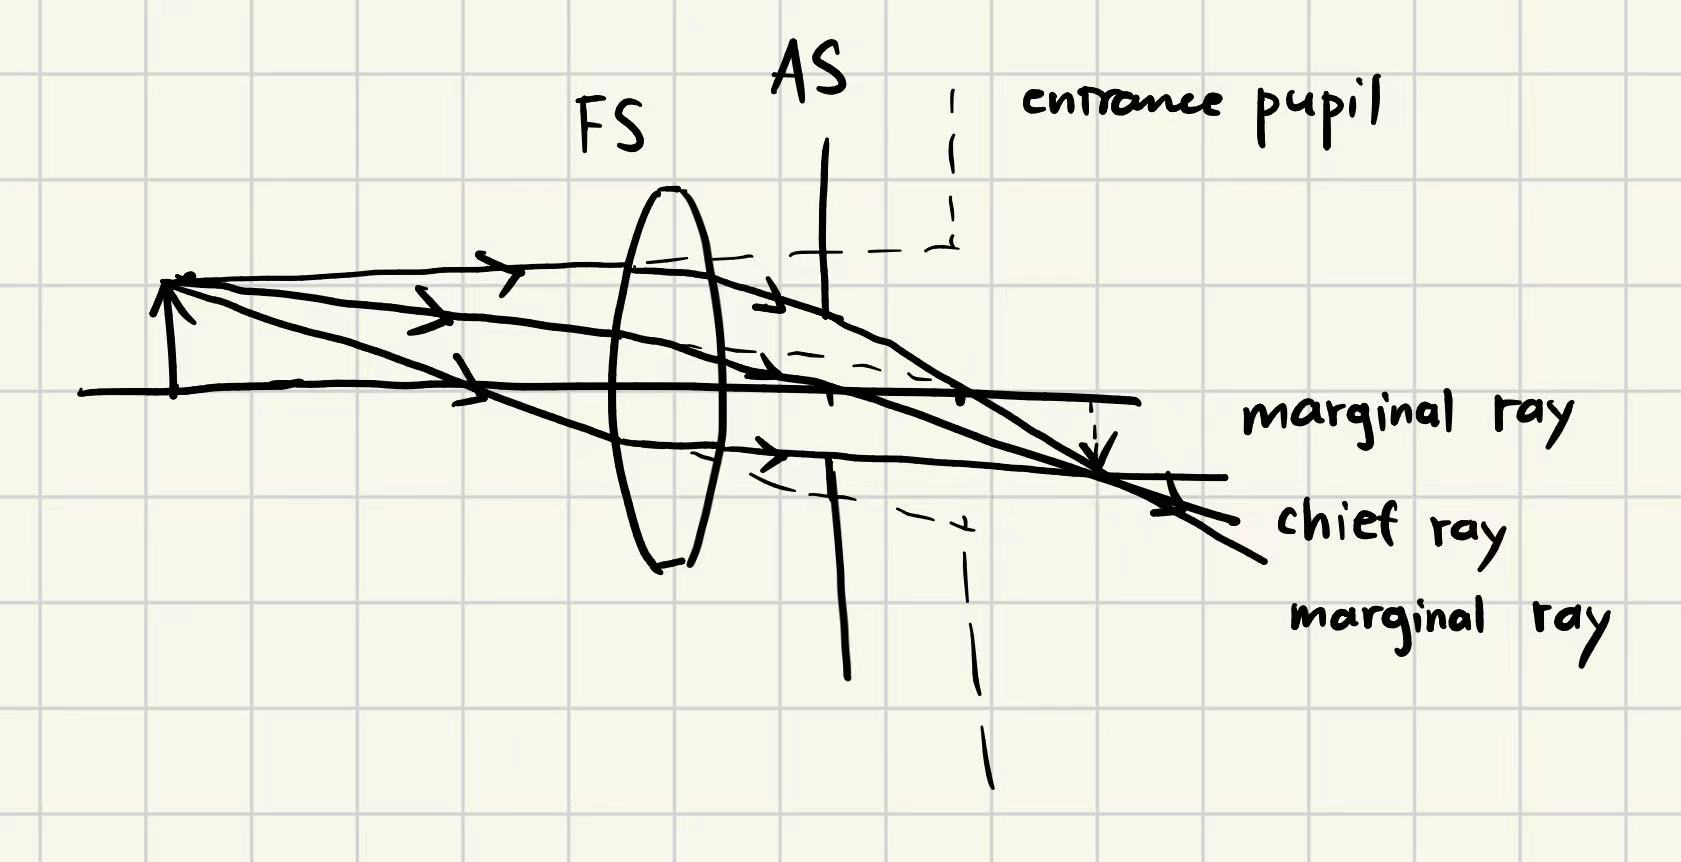 AS
FS
entrance pupil
marginal ray
chief ray
marginal ray